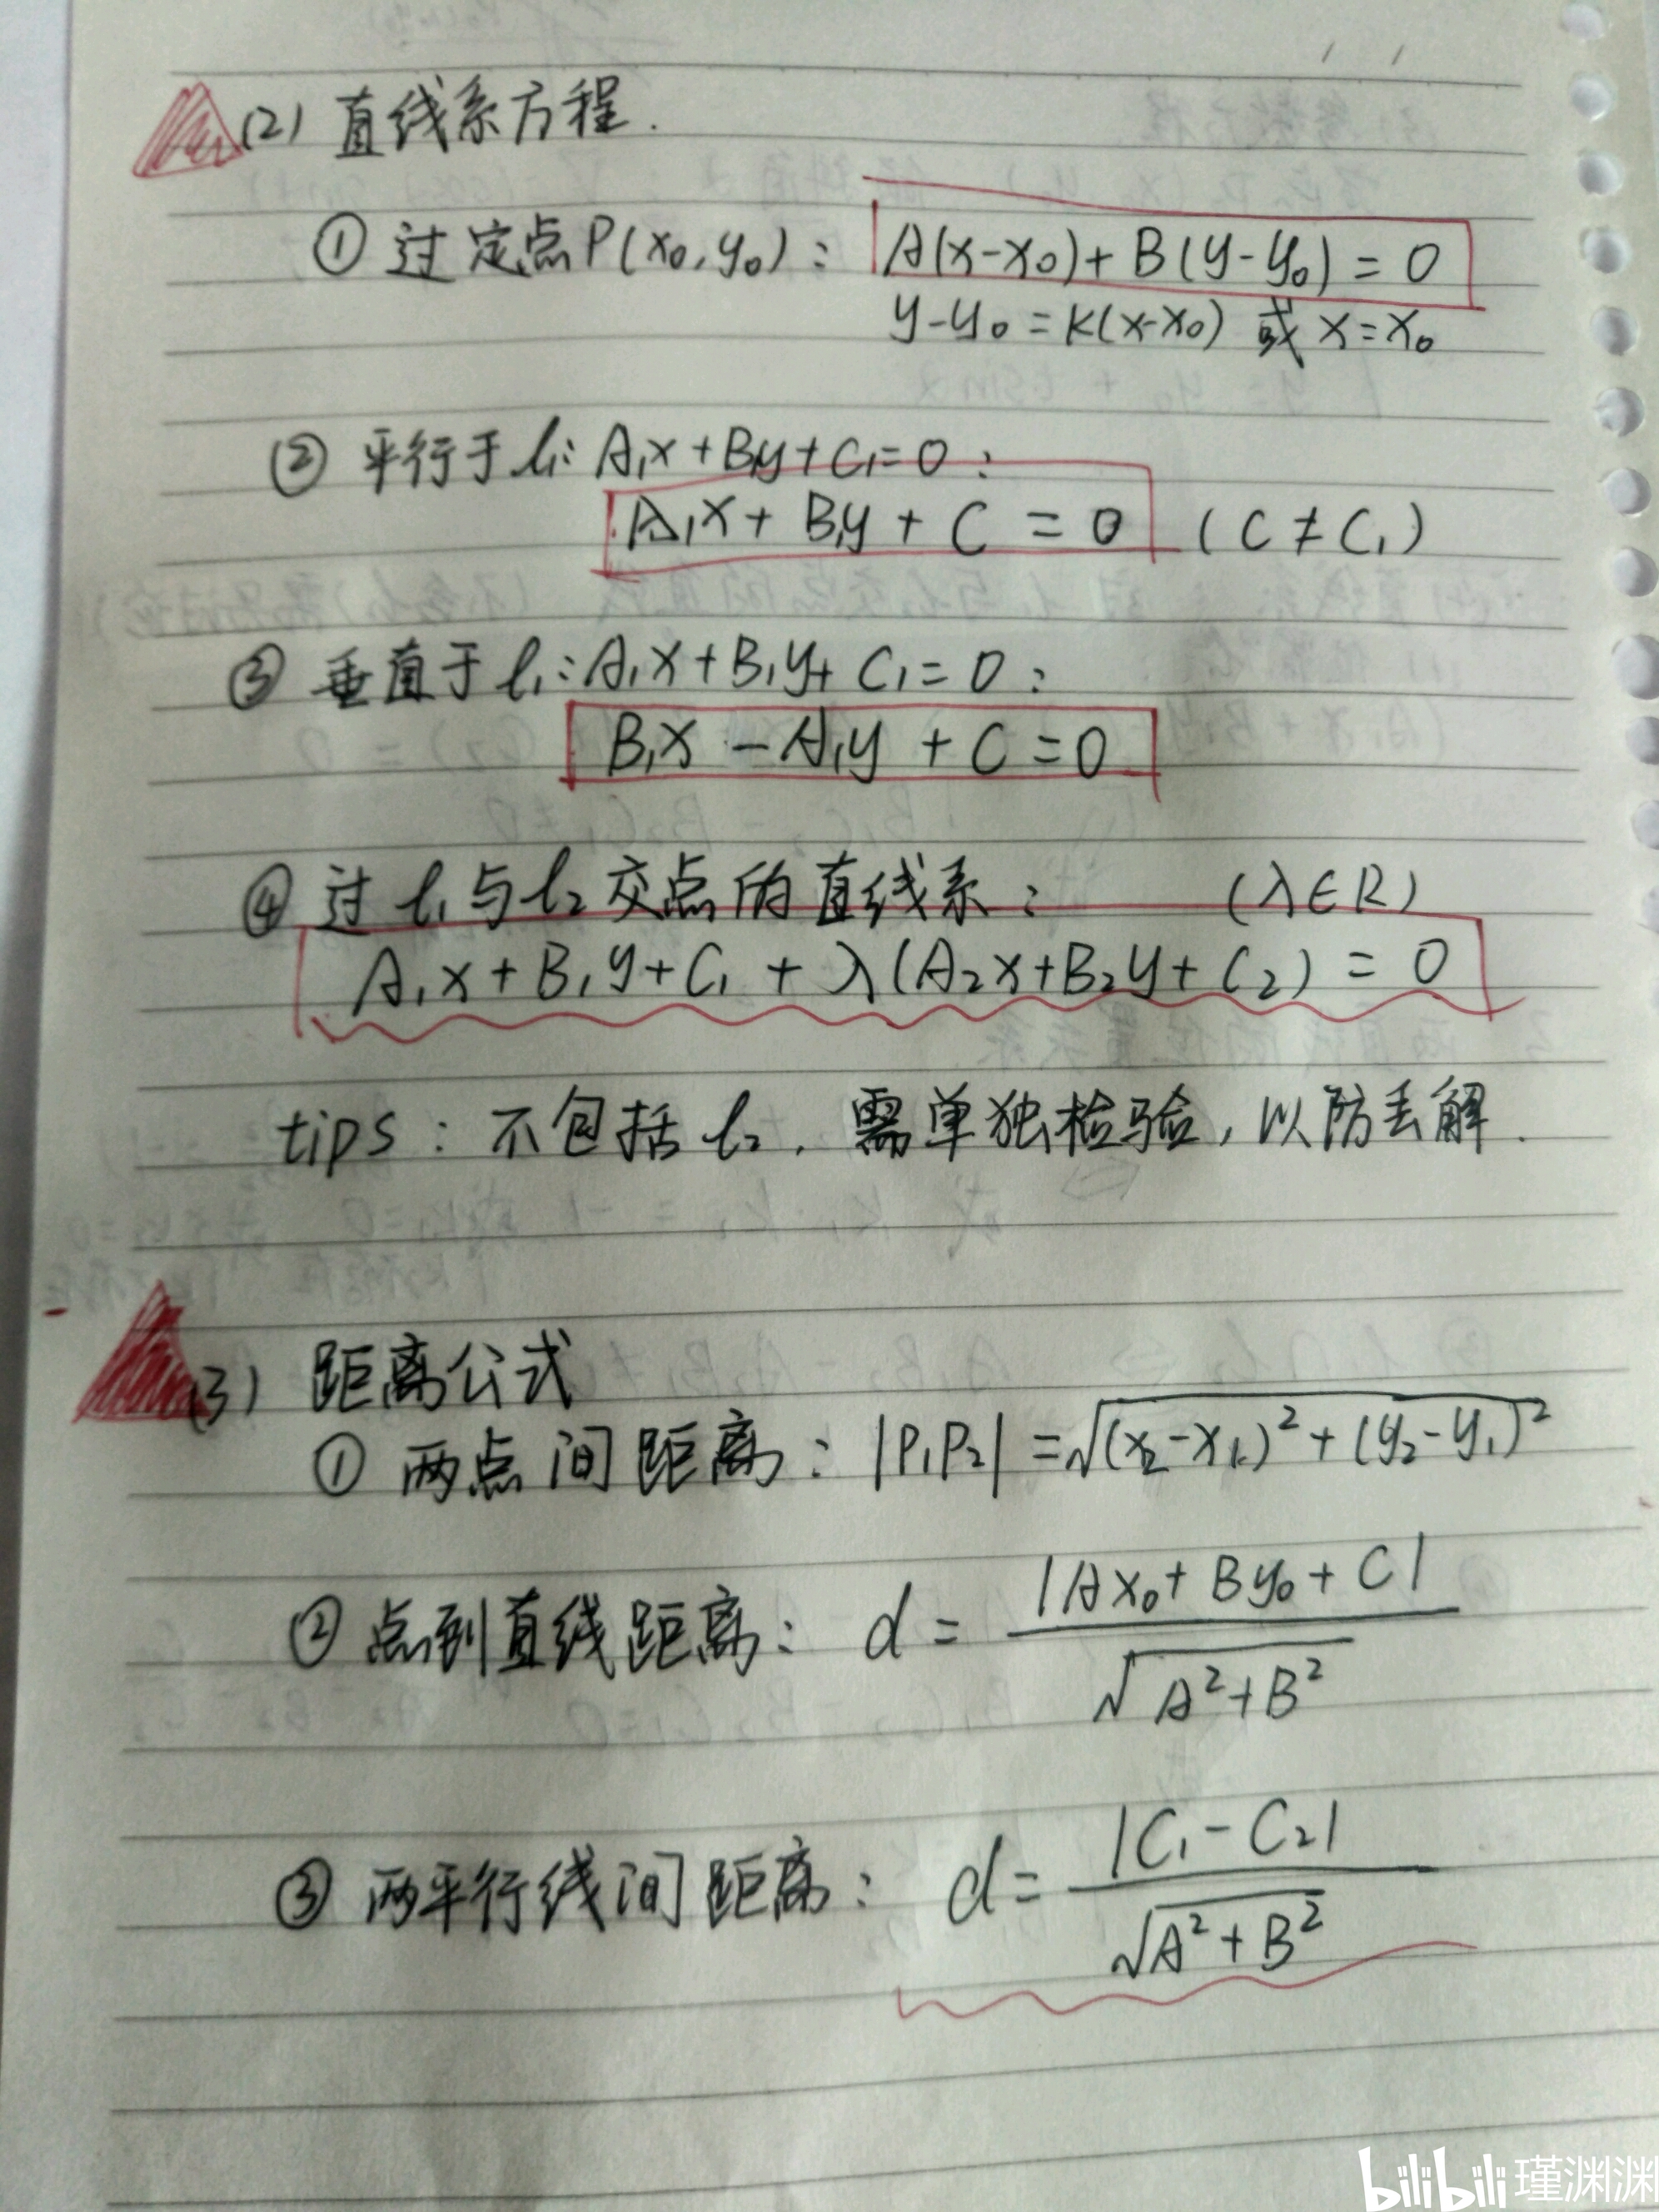 (2) 直线系方程.
① 过定点P(x₀,y₀): A(x-x₀)+B(y-y₀)=0
y-y₀=k(x-x₀) 或 x=x₀
② 平行于l₁: A₁x+B₁y+C₁=0:
A₁x+B₁y+C=0 (C≠C₁)
③ 垂直于l₁: A₁x+B₁y+C₁=0:
B₁x-A₁y+C=0
④ 过l₁与l₂交点的直线系: (λ∈R)
A₁x+B₁y+C₁+λ(A₂x+B₂y+C₂)=0
tips: 不包括l₂, 需单独检验, 以防丢解.
(3) 距离公式
① 两点间距离: |P₁P₂|=√(x₂-x₁)²+(y₂-y₁)²
② 点到直线距离: d=|Ax₀+By₀+C|/√A²+B²
③ 两平行线间距离: d=|C₁-C₂|/√A²+B²
bilibili 瑾渊渊